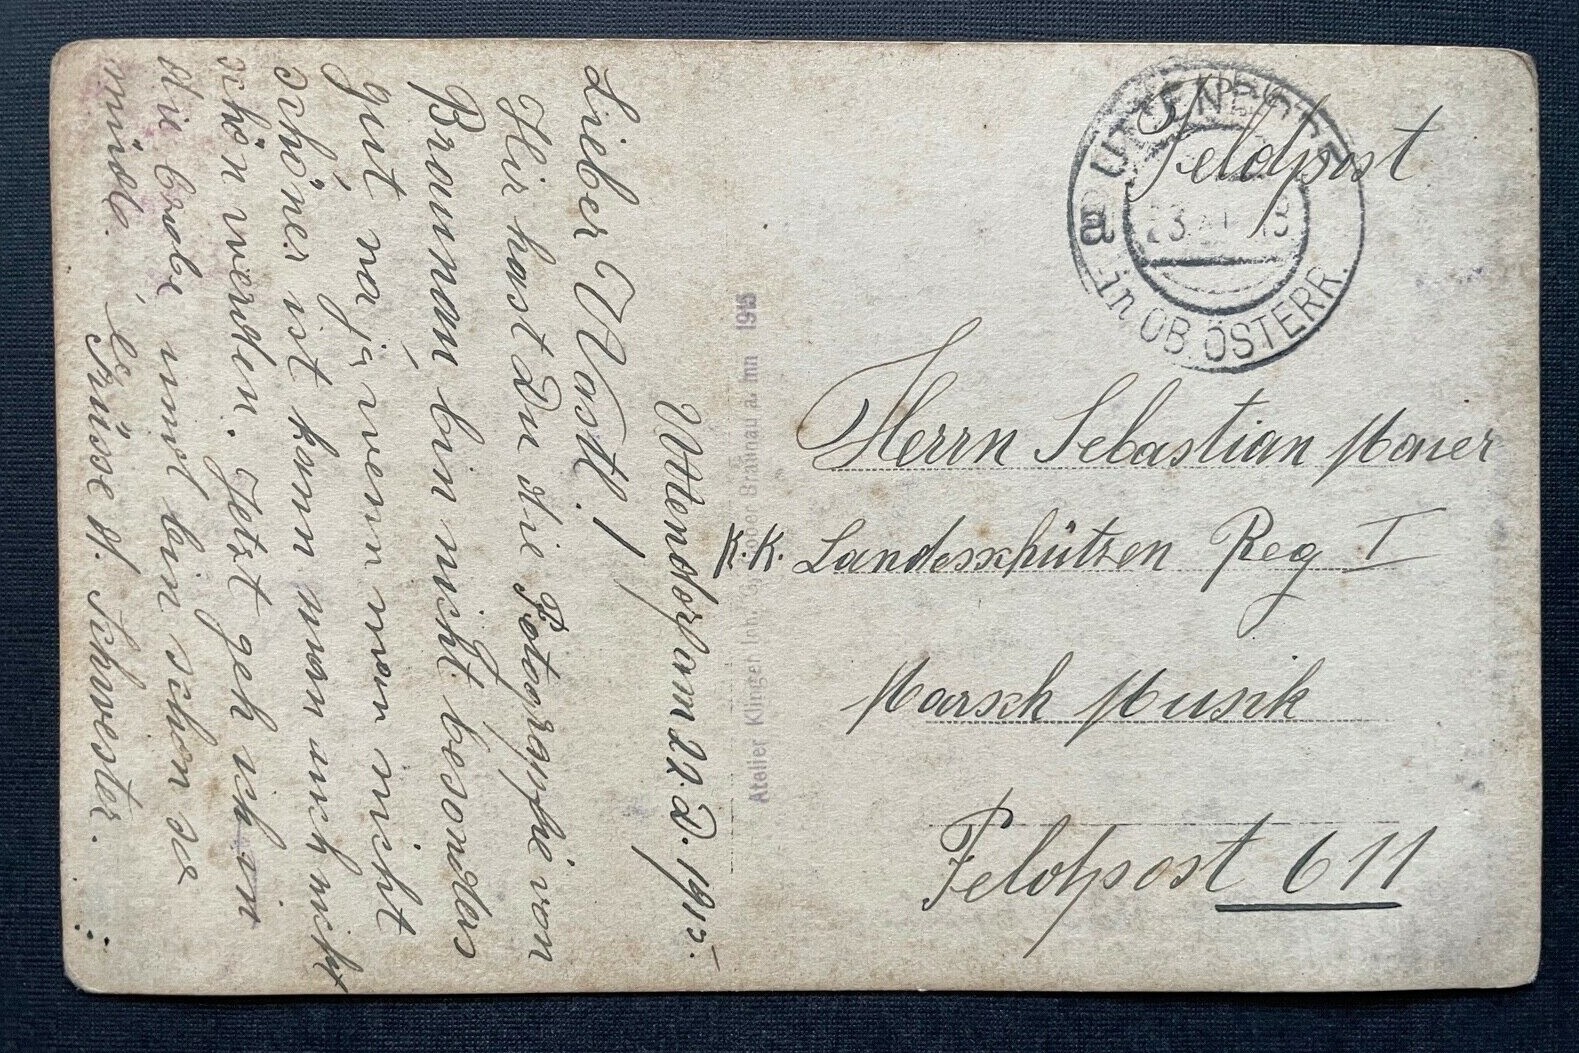 Feldpost
UTTENDORF
a
23.XII.15
in OB.ÖSTERR.
Herrn Sebastian Maier
K.K. Landesschützen Reg I
Marsch Musik
Feldpost 611
Atelier Klinger Inh. Braunau a. Inn 1915
Uttendorf am 22.D.1915.
Lieber Wastl!
Hir hast Du die Fotographie von
Braunau bin nicht besonders
gut na ja wenn man nicht
schöner ist kann man auch nicht
schön werden. Jetzt geh ich in
die und bin schon so
müde.
Grüße d. Schwester.